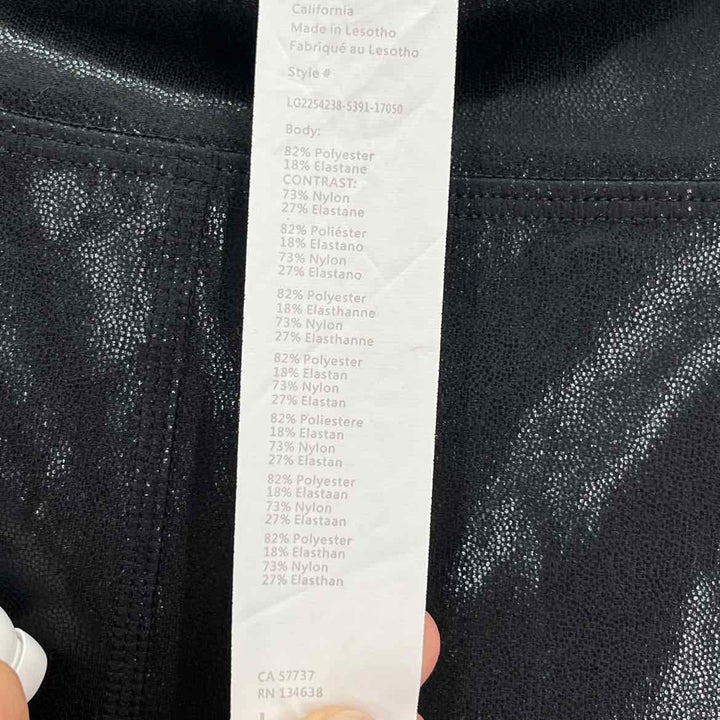 California
Made in Lesotho
Fabriqué au Lesotho
Style #
LG2254238-5391-17050
Body:
82% Polyester
18% Elastane
CONTRAST:
73% Nylon
27% Elastane
82% Poliéster
18% Elastano
73% Nylon
27% Elastano
82% Polyester
18% Elasthanne
73% Nylon
27% Elasthanne
82% Polyester
18% Elastan
73% Nylon
27% Elastan
82% Poliestere
18% Elastan
73% Nylon
27% Elastan
82% Polyester
18% Elastaan
73% Nylon
27% Elastaan
82% Polyester
18% Elasthan
73% Nylon
27% Elasthan
CA 57737
RN 134638